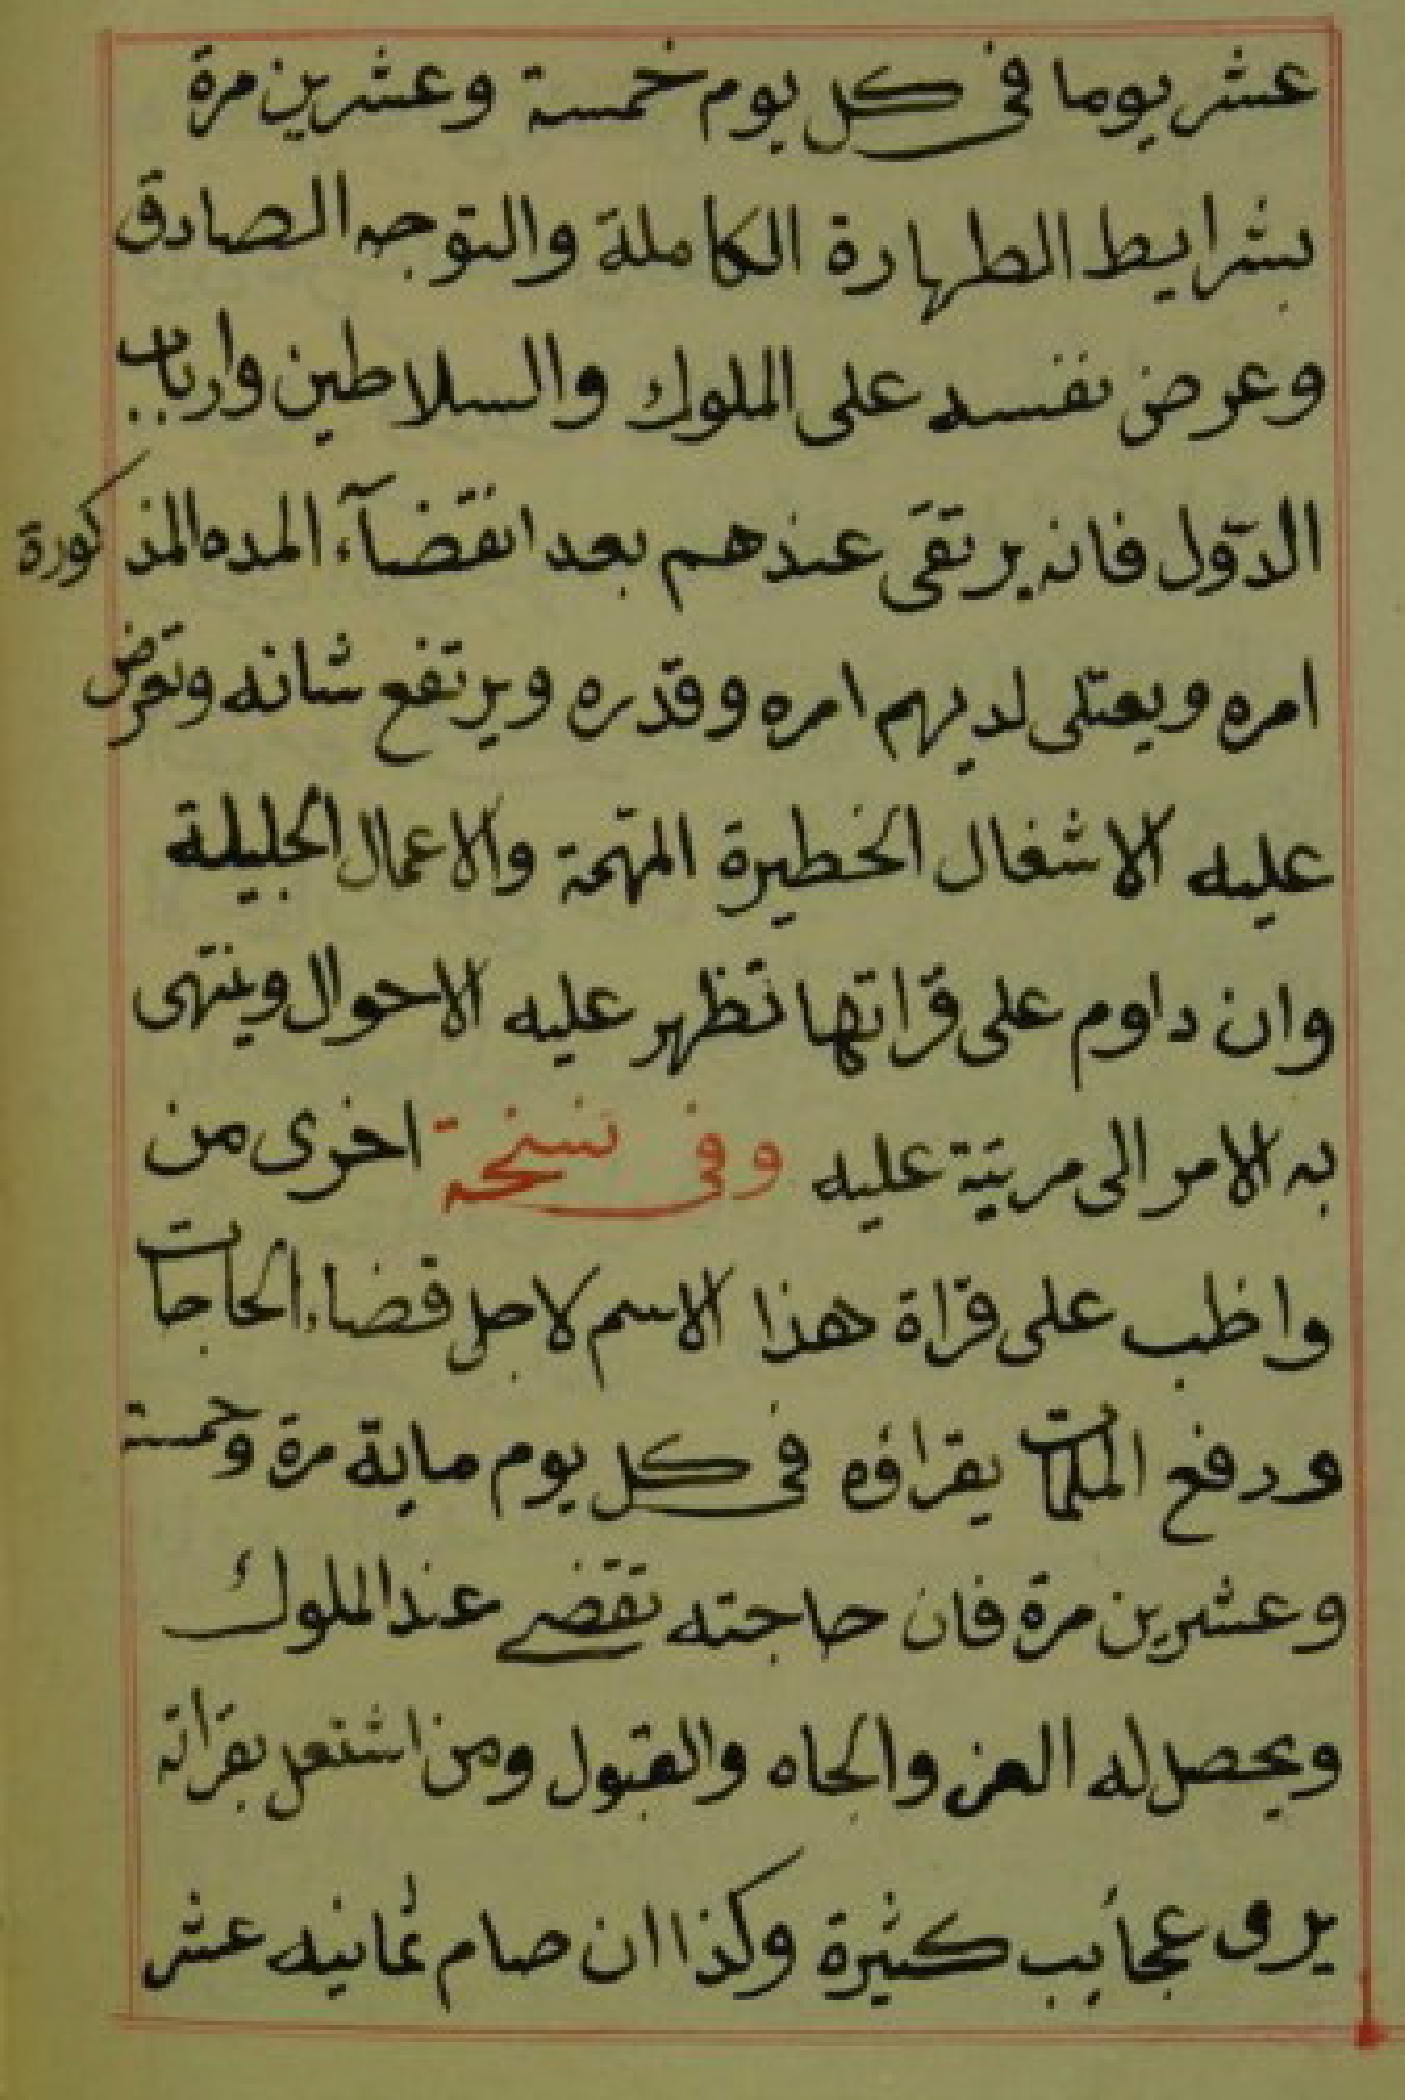 عشر يوما فى كل يوم خمسة وعشرين مرة
بشرايط الطهارة الكاملة والتوجه الصادق
وعرض نفسه على الملوك والسلاطين وارباب
الدّول فانه يرتقى عندهم بعد انقضآء المده المذكورة
امره ويعتلى لديهم امره وقدره ويرتفع شانه وتعرض
عليه الاشغال الخطيرة المهّمة والاعمال الجليلة
وان داوم على قراتها تظهر عليه الاحوال وينتهى
به الامر الى مرتبة عليه وفى نسخة اخرى من
واظب على قراة هذا الاسم لاجل قضاء الحاجات
ودفع الملمات يقراؤه فى كل يوم ماية مرة وخمسة
وعشرين مرة فان حاجته تقضى عند الملوك
ويحصل له العز والجاه والقبول ومن اشتغل بقراته
يرى عجائب كثيرة وكذا ان صام ثمانيه عشر